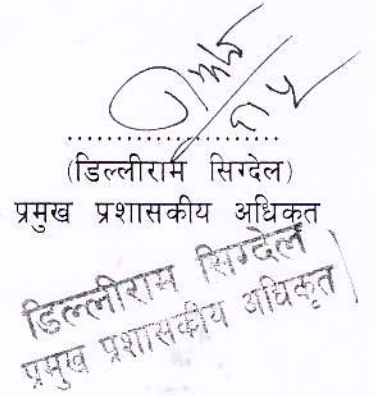 (डिल्लीराम सिग्देल)
प्रमुख प्रशासकीय अधिकृत
डिल्लीराम सिग्देल
प्रमुख प्रशासकीय अधिकृत